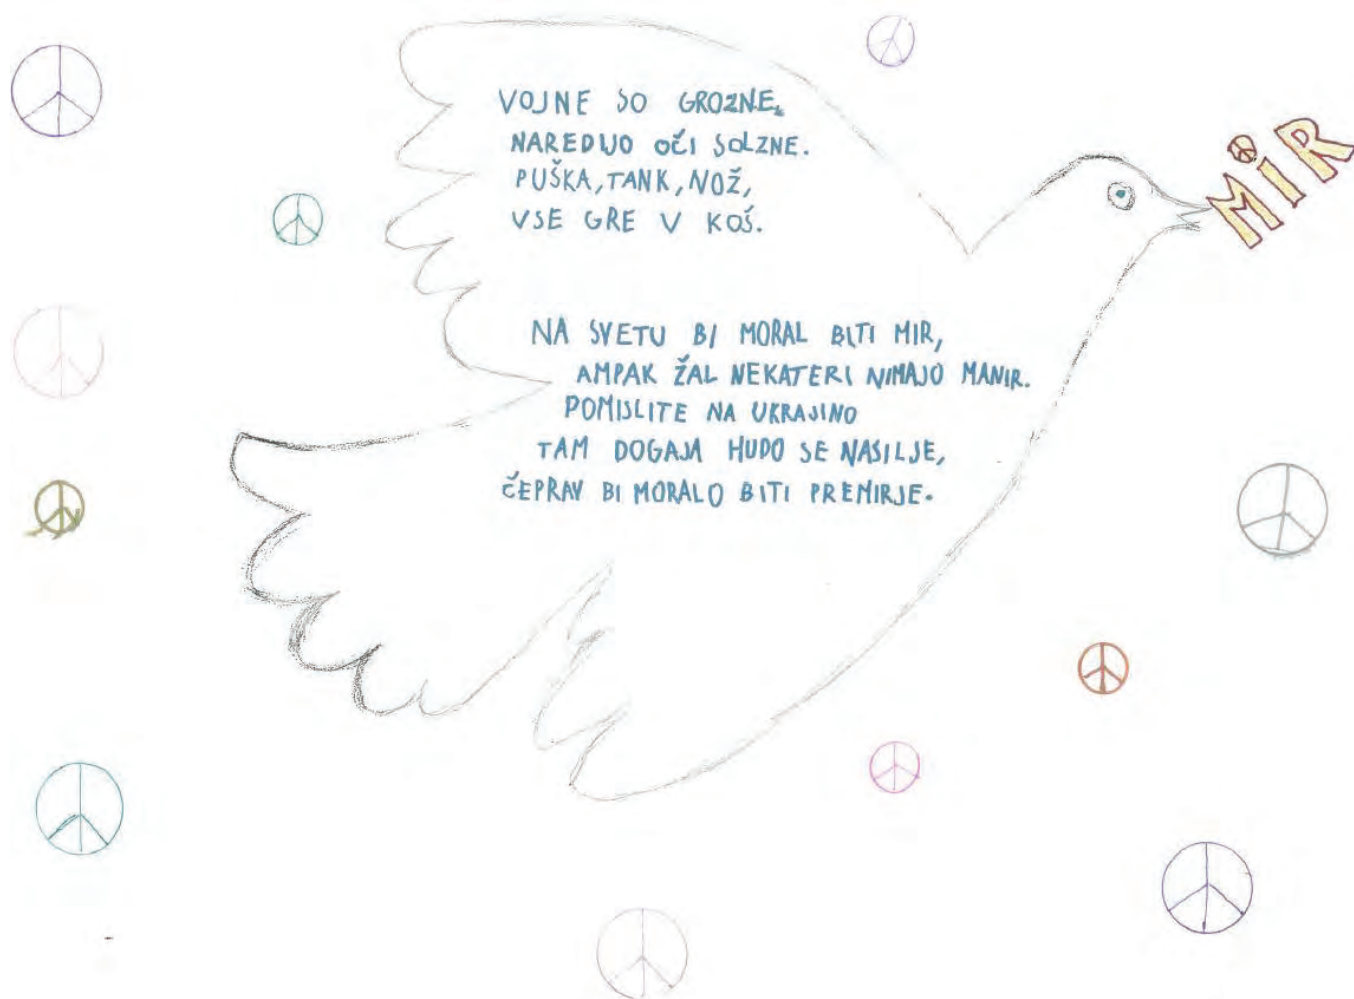 VOJNE SO GROZNE,
NAREDIJO OČI SOLZNE.
PUŠKA, TANK, NOŽ,
VSE GRE V KOŠ.
NA SVETU BI MORAL BITI MIR,
AMPAK ŽAL NEKATERI NIMAJO MANIR.
POMISLITE NA UKRAJINO
TAM DOGAJA HUDO SE NASILJE,
ČEPRAV BI MORALO BITI PREMIRJE.
MIR